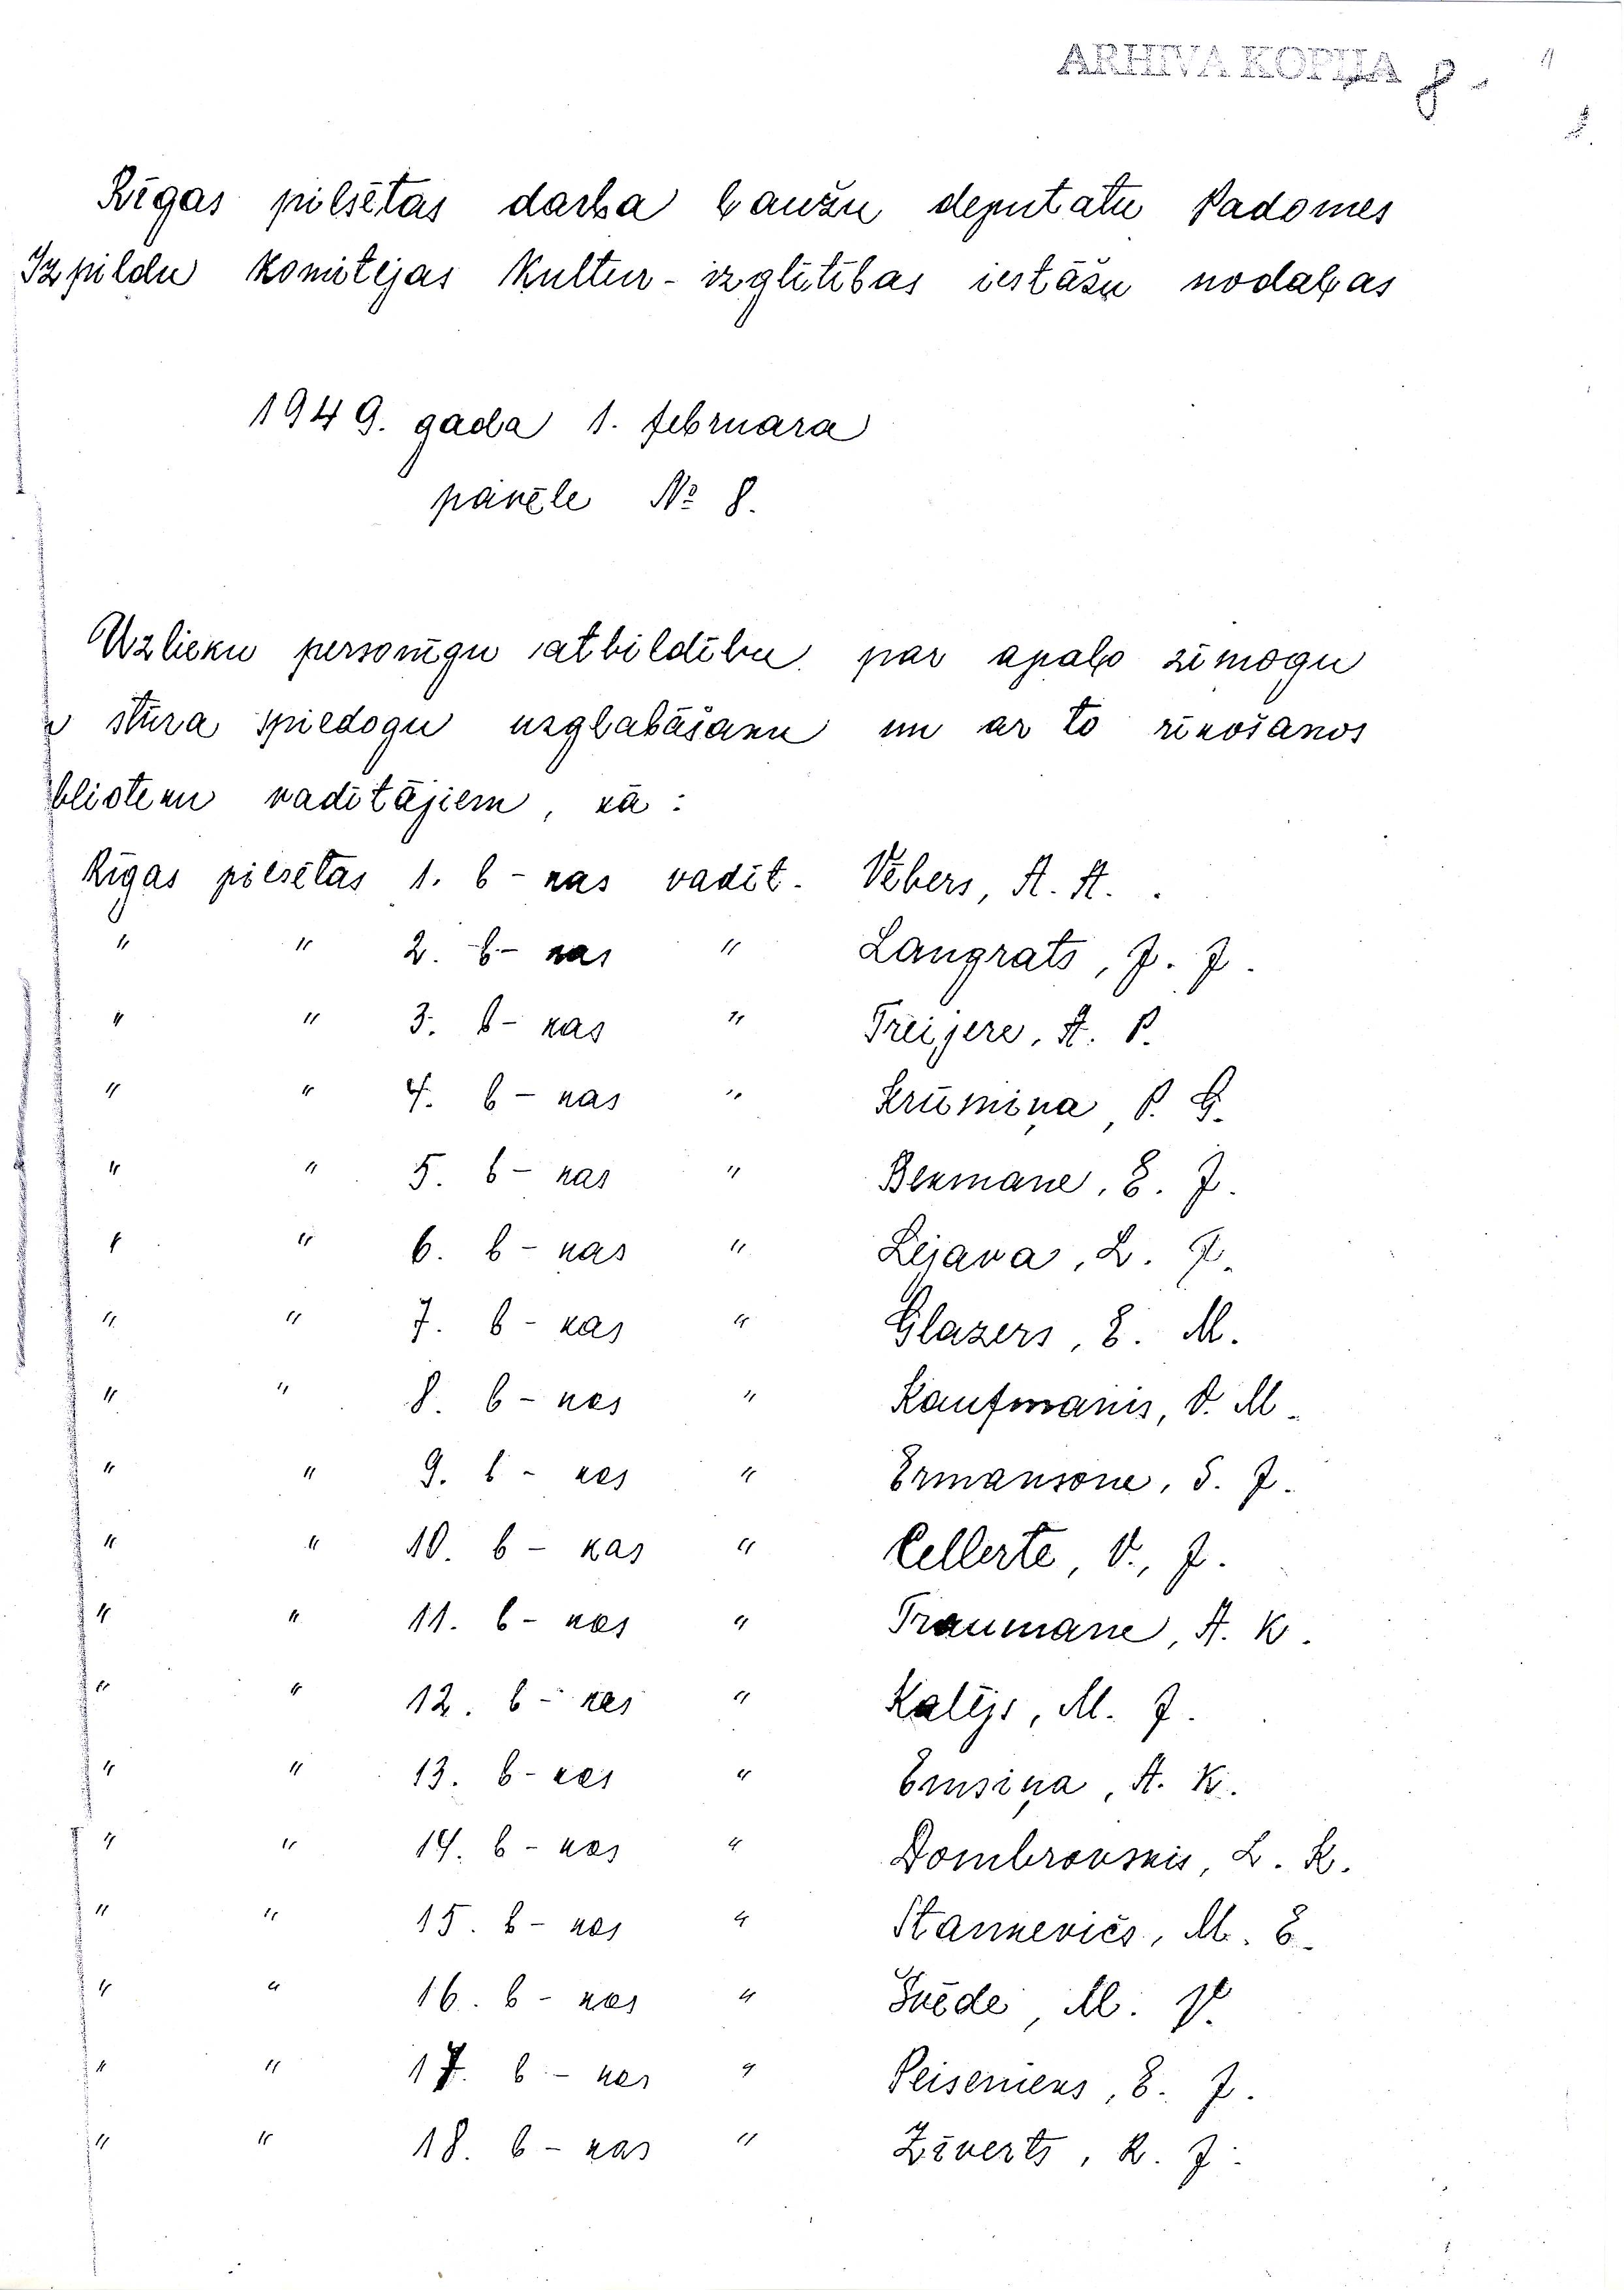 ARHIVA KOPIJA 8.
Rīgas pilsētas darba ļaužu deputatu Padomes
Izpildu komitejas Kultur-izglītības iestāžu nodaļas
1949. gada 1. februara
pavēle № 8.
Uzlieku personīgu atbildību par apaļo zīmogu
stūra spiedogu uzglabāšanu un ar to rīkošanos
blioteku vadītājiem, kā:
Rīgas pilsētas 1. b-kas vadīt. Vēbers, A. A.
" " 2. b-kas " Langrats, J. J.
" " 3. b-kas " Treijere, A. P.
" " 4. b-kas " Krūmiņa, P. G.
" " 5. b-kas " Bekmane, E. J.
" " 6. b-kas " Lejava, L. J.
" " 7. b-kas " Glazers, E. M.
" " 8. b-kas " Kaufmanis, V. M.
" " 9. b-kas " Ermansone, S. J.
" " 10. b-kas " Cellerte, V., J.
" " 11. b-kas " Traumane, A. K.
" " 12. b-kas " Kalējs, M. J.
" " 13. b-kas " Emsiņa, A. K.
" " 14. b-kas " Dombrovskis, L. K.
" " 15. b-kas " Stankevičs, M. E.
" " 16. b-kas " Švēde, M. V.
" " 17. b-kas " Peisenieks, E. J.
" " 18. b-kas " Zīverts, R. J.